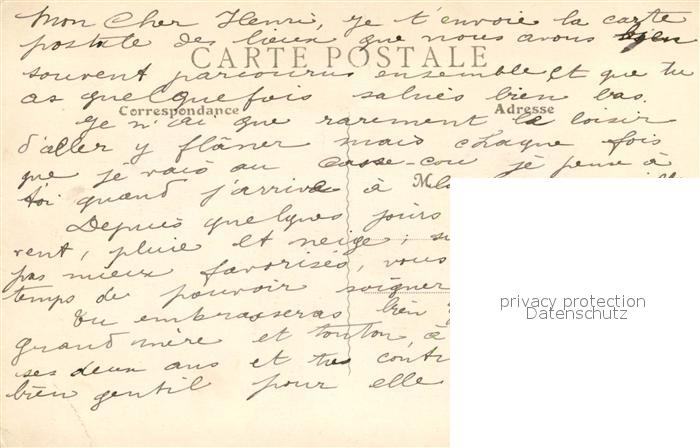 Mon Cher Henri, je t'envoie la carte
postale des lieux que nous avons bien
CARTE POSTALE
souvent parcourus ensemble et que tu
as quelquefois salués bien bas.
Correspondance Adresse
Je n'ai que rarement le loisir
d'aller y flâner mais chaque fois
que je vais au Casse-cou je pense à
toi quand j'arrive à
M
Depuis quelques jours
vent, pluie et neige ;
pas mieux favorisés, vous
temps de pouvoir soigner
Tu embrasseras bien
grand mère et tonton, à
ses deux ans et tu
bien gentil pour elle
privacy protection
Datenschutz